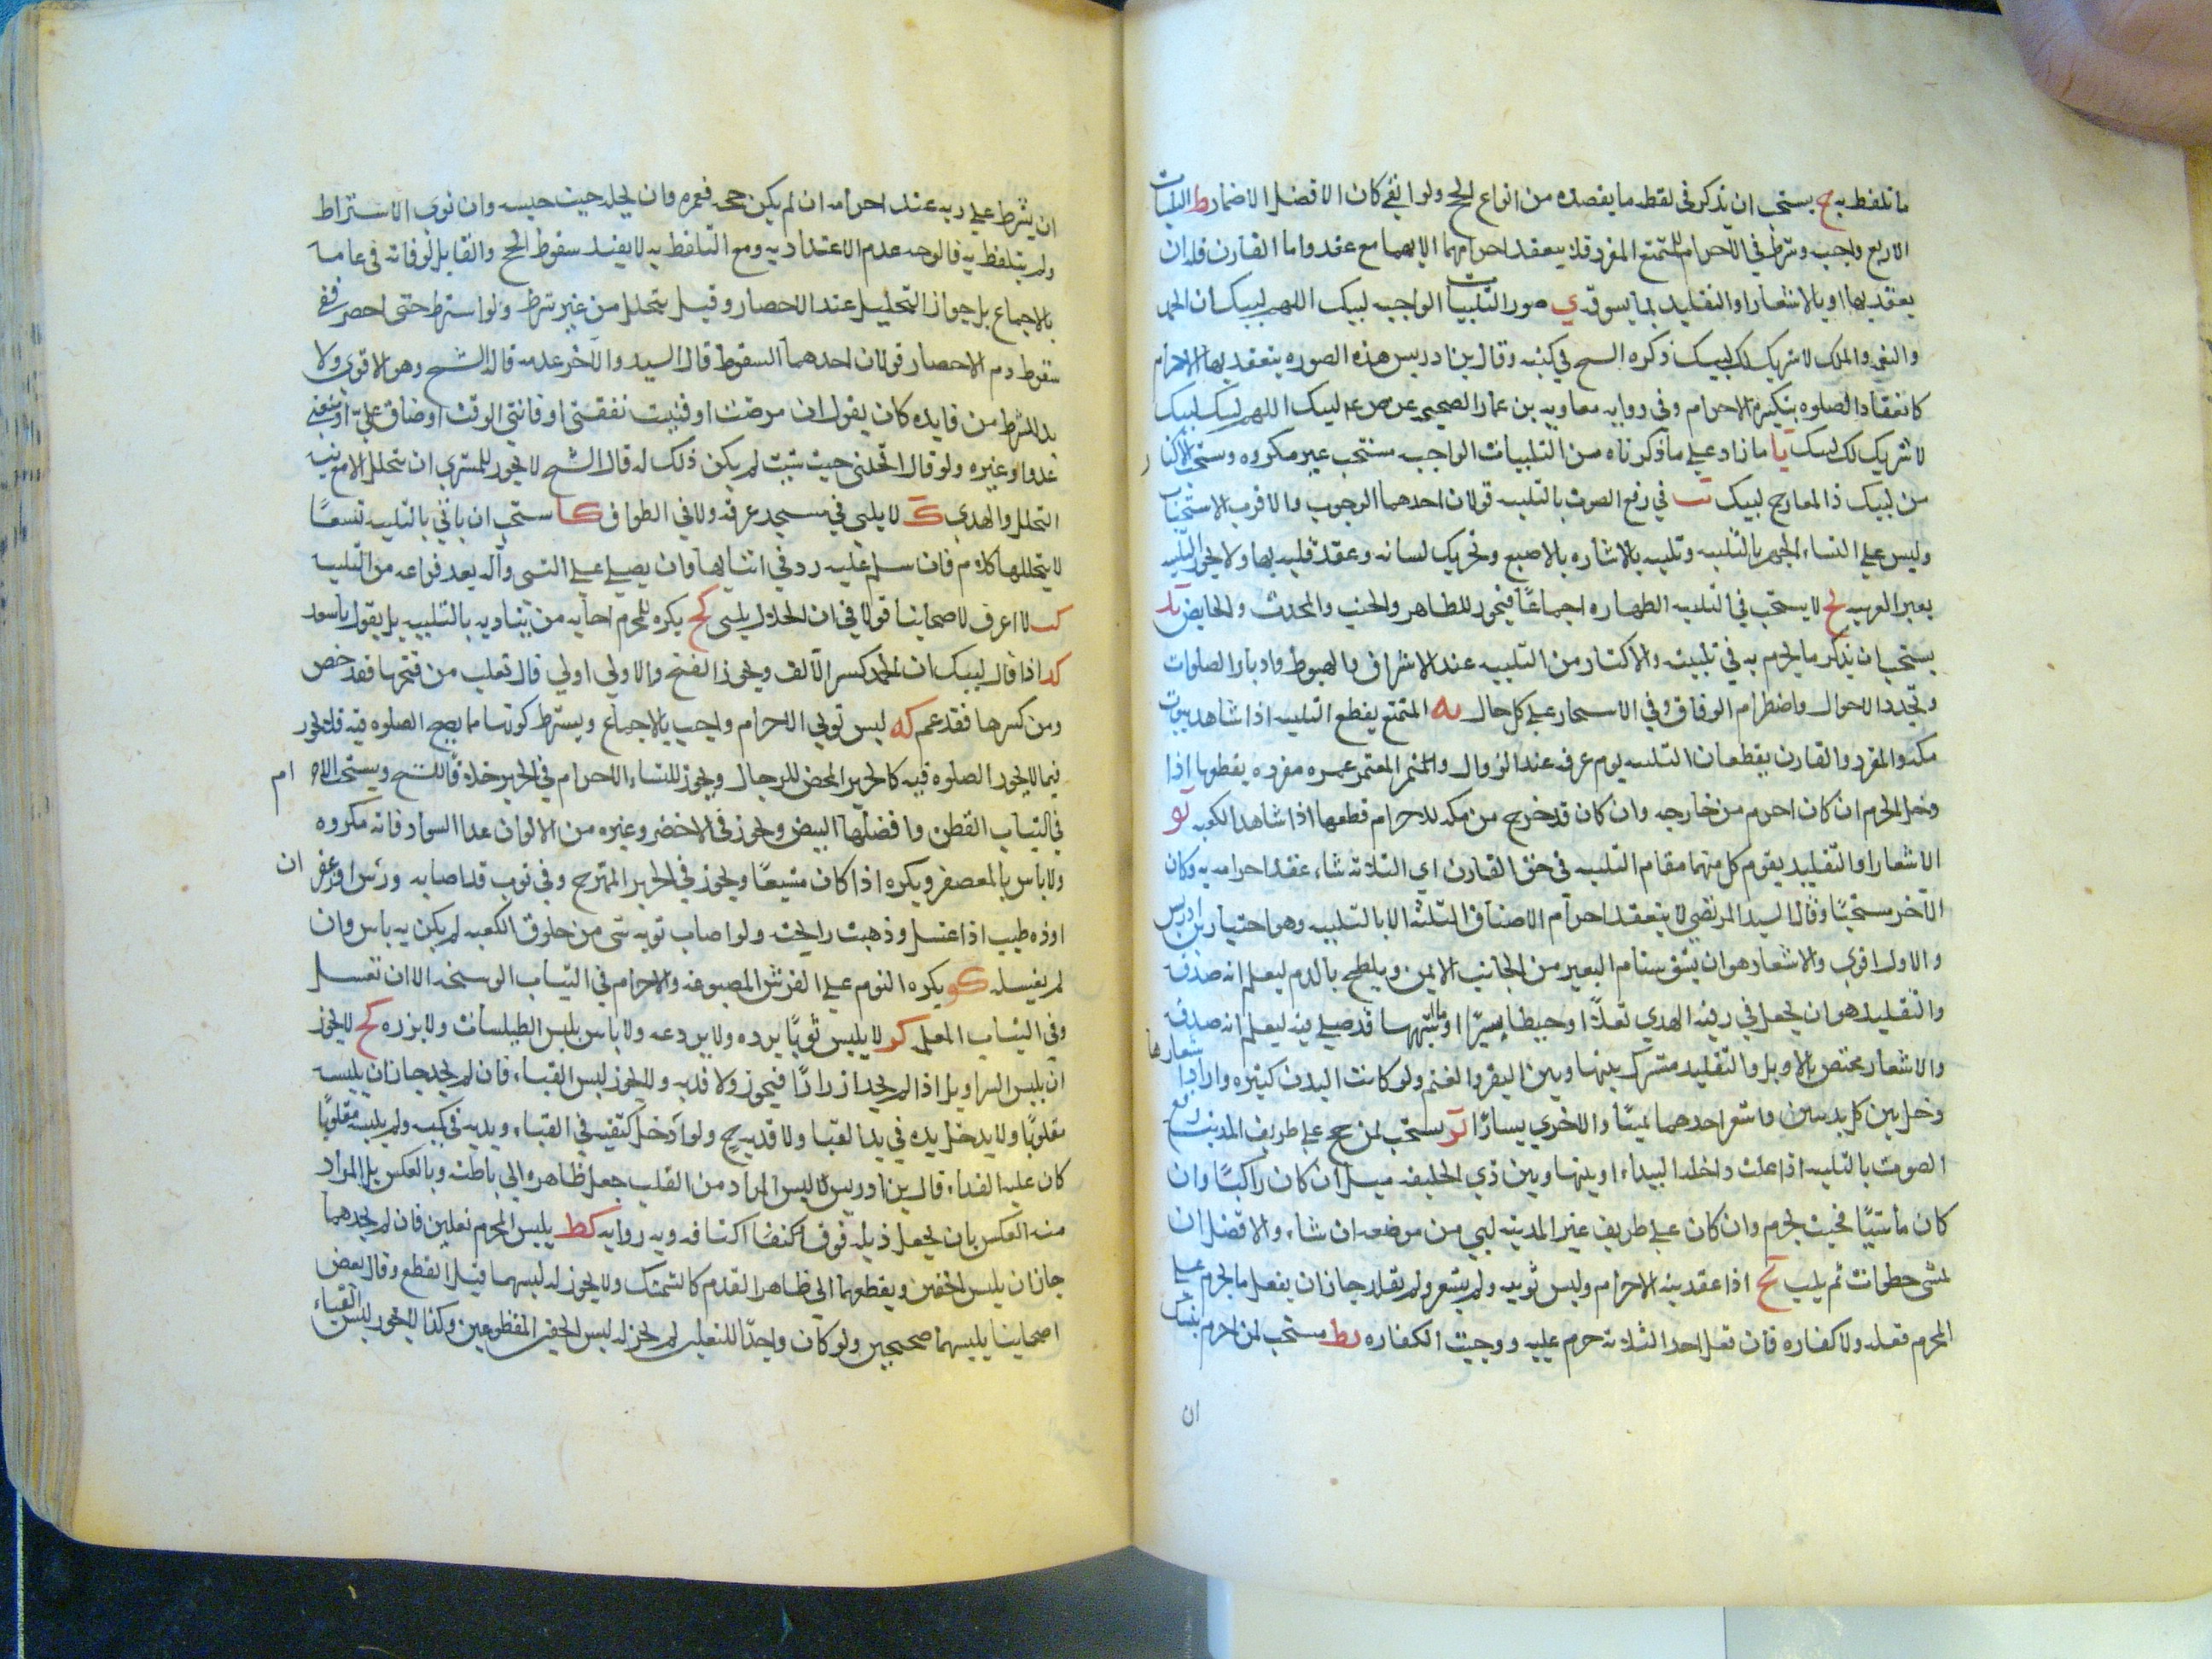 ما تلفظ به ح يستحب ان يذكر في لفظه ما يقصده من انواع الحج ولو اتقى كان الافضل الاضمار ط التلبيات
الاربع واجبه وشرط في الاحرام للمتمتع المفرد فلا ينعقد احرامهما الا بهما مع عقد واما القارن فله ان
يعقد بها او بالاشعار او التقليد لما يسوقه ي صورة التلبيات الواجبه لبيك اللهم لبيك ان الحمد
والنعمه والملك لا شريك لك لبيك ذكره الشيخ في كتبه وقال بن ادريس هذه الصوره ينعقد بها الاحرام
كانعقاد الصلوه بتكبيره الاحرام وفي روايه معاويه بن عمار الصحيح عن ص ع لبيك اللهم لبيك لبيك
لا شريك لك لبيك يا ما زاد على ما ذكرناه من التلبيات الواجبه مستحب غير مكروه ويستحب الاكثار
من لبيك ذا المعارج لبيك يب في رفع الصوت بالتلبيه قولان احدهما الوجوب والاقرب الاستحباب
وليس على النساء الجهر بالتلبيه وتلبيه بالاشاره بالاصبع وتحريك لسانه وعقد قلبه بها ولا يجوز التلبيه
بغير العربيه يج لا يستحب في التلبيه الطهاره اجماعًا فيجوز للطاهر والجنب والمحدث والحايض يد
يستحب ان يذكر ما يحرم به في تلبيته والاكثار من التلبيه عند الاشراف والهبوط وادبار الصلوات
وتجدد الاحوال واضطرام الرفاق وفي الاسحار على كل حال يه المتمتع يقطع التلبيه اذا شاهد بيوت
مكه والمفرد والقارن يقطعان التلبيه يوم عرفه عند الزوال والمعتمر عمره مفرده يقطعها اذا
دخل الحرم ان كان احرم من خارجه وان كان قد خرج من مكه للاحرام قطعها اذا شاهد الكعبه يو
الاشعار او التقليد يقوم كل منهما مقام التلبيه في حق القارن اي الثلاثه شاء عقد احرامه به وكان
الآخر مستحبًا وقال السيد المرتضى لا ينعقد احرام الاصناف الثلثه الا بالتلبيه وهو اختيار بن ادريس
والاول اقوى والاشعار هو ان يشق سنام البعير من الجانب الايمن ويلطخ بالدم ليعلم انه صدقه
والتقليد هو ان يجعل في رقبه الهدي نعلًا او خيطا او سيرًا او ما اشبهها قد صلى فيه ليعلم انه صدقه
والاشعار مختص بالابل والتقليد مشترك بينها وبين البقر والغنم ولو كانت البدن كثيره واراد اشعارها
دخل بين كل بدنتين واشعر احدهما يمينًا والاخرى يسارًا يز يستحب لمن حج على طريق المدينه رفع
الصوت بالتلبيه اذا علت راحلته البيداء وبينها وبين ذي الحليفه ميل ان كان راكبًا وان
كان ماشيًا فحيث يحرم وان كان على طريق غير المدينه لبى من موضعه ان شاء والافضل ان
يمشي خطوات ثم يلبي يح اذا عقد نيه الاحرام ولبس ثوبيه ولم يشعر ولم يقلد جاز ان يفعل ما يحرم على
المحرم فعله ولا كفاره فان فعل احد الثلاثه حرم عليه ووجبت الكفاره يط يستحب لمن احرم بنسك
ان
ان يشرط على ربه عند احرامه ان لم يكن حجه فعمره وان يحله حيث حبسه وان نوى الاشتراط
ولم يتلفظ به فالوجه عدم الاعتداد به ومع التلفظ به لا يفيد سقوط الحج والقابل لو فاته في عامه
بالاجماع بل جواز التحليل عند الاحصار وقيل يتحلل من غير شرط ولو اشترط حتى احصر ففي
سقوط دم الاحصار قولان احدهما السقوط قال السيد والآخر عدمه قاله الشيخ وهو الاقوى ولا
بد للشرط من فايده كان يقول ان مرضت او فنيت نفقتي او فاتني الوقت او ضاق علي او منعني
عدو او غيره ولو قال ان تحلني حيث شيت لم يكن ذلك له قال الشيخ لا يجوز للمشترط ان يتحلل الا مع نيه
التحلل والهدي ك لا يلبي في مسجد عرفه ولا في الطواف كا يستحب ان ياتي بالتلبيه نسقًا
لا يتخللها كلام فان سلم عليه رد في اثنايها وان يصلي على النبي وآله بعد فراغه من التلبيه
كب لا اعرف لاصحابنا قولا في ان الحلال يلبي كج يكره للمحرم اجابه من يناديه بالتلبيه بل يقول يا سعد
كد اذا قال لبيك ان الحمد كسر الالف ويجوز الفتح والاولى اولى قال ثعلب من فتحها فقد خص
ومن كسرها فقد عمم كه لبس ثوبي الاحرام واجب بالاجماع ويشترط كونهما مما يصح الصلوه فيه فلا يجوز
فيما لا يجوز الصلوه فيه كالحرير المحض للرجال ويجوز للنساء الاحرام في الحرير خلافًا للشيخ ويستحب الاحرام
في الثياب القطن وافضلها البيض ويجوز في الاخضر وغيره من الالوان عدا السواد فانه مكروه
ولا باس بالمعصفر ويكره اذا كان مشبعًا ويجوز في الحرير الممتزج وفي ثوب قد اصابه ورس او زعفران
او ذه طيب اذا غسل وذهبت رايحته ولو اصاب ثوبه شى من خلوق الكعبه لم يكن به باس وان
لم يغسله كو يكره النوم على الفرش المصبوغه والاحرام في الثياب الوسخه الا ان تغسل
وفي الثياب المعلمه كز لا يلبس ثوبًا يزره ولا يدرعه ولا باس بلبس الطيلسان ولا يزره كح لا يجوز
ان يلبس السراويل اذا لم يجد ازرارًا فيجوز ولا فديه ولا يجوز لبس القباء فان لم يجد جاز ان يلبسه
مقلوبًا ولا يدخل يده في يد القبا ولا فديه ح ولو ادخل كتفيه في القباء ويديه في كميه ولم يلبسه مقلوبًا
كان عليه الفداء قال بن ادريس ليس المراد من القلب جعل ظاهره الى باطنه وبالعكس بل المراد
منه العكس بان يجعل ذيله فوق اكتافه وبه روايه كط يلبس المحرم نعلين فان لم يجدهما
جاز ان يلبس الخفين ويقطعهما الى ظاهر القدم كالشمشك ولا يجوز له لبسهما قبل القطع وقال بعض
اصحابنا يلبسهما صحيحين ولو كان واجدًا للنعلين لم يجز له لبس الخفين المقطوعين وكذا لا يجوز لبس القباء